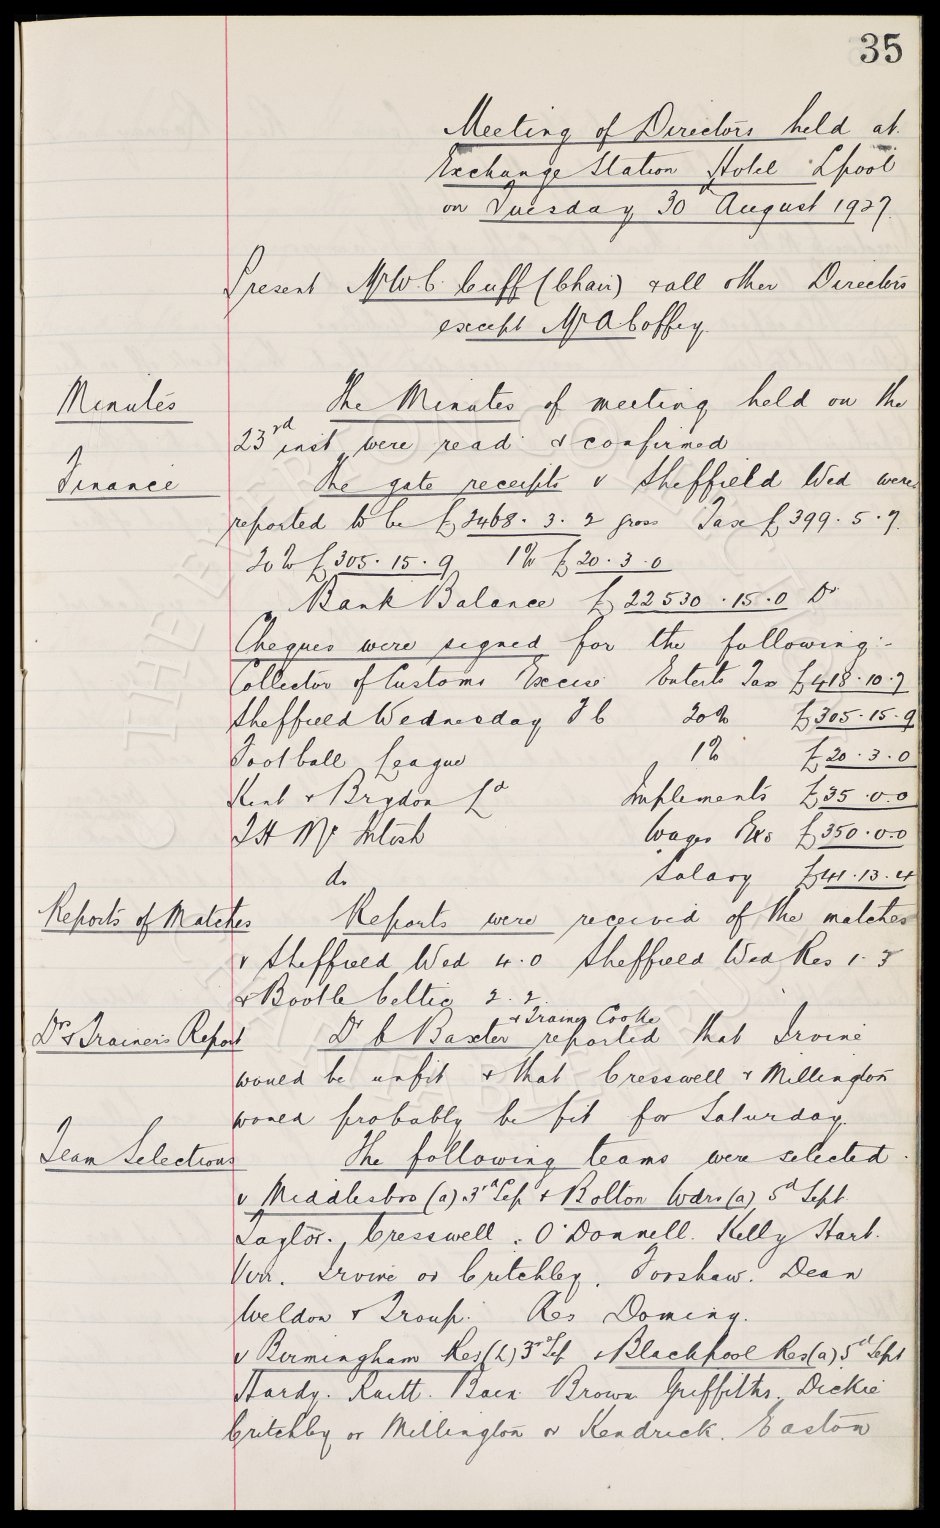 35
Meeting of Directors held at
Exchange Station Hotel Lpool
on Tuesday 30th August 1927.
Present Mr W.C. Cuff (Chair) & all other Directors
except Mr A Coffey.
Minutes
The Minutes of meeting held on the
23rd inst were read & confirmed
Finance
The gate receipts v Sheffield Wed were
reported to be £2468. 3. 2 gross Tax £399. 5. 7.
20% £305. 15. 9 1% £20. 3. 0
Bank Balance £22530. 15. 0 Dr
Cheques were signed for the following:-
Collector of Customs Excise Enterts Tax £418. 10. 7
Sheffield Wednesday F C 20% £305. 15. 9
Football League 1% £20. 3. 0
Kent & Brydon Ld Implements £35. 0. 0
T H McIntosh Wages Exs £350. 0. 0
do Salary £41. 13. 4
Reports of Matches
Reports were received of the matches
v Sheffield Wed 4.0 Sheffield Wed Res 1.3
& Bootle Celtic 2. 2.
Drs & Trainers Report
Dr C Baxter & Trainer Cooke reported that Irvine
would be unfit & that Cresswell & Millington
would probably be fit for Saturday.
Team Selections
The following teams were selected.
v Middlesbro (a) 3rd Sep & Bolton Wdrs (a) 5th Sept
Taylor. Cresswell. O'Donnell. Kelly Hart.
Virr. Irvine or Critchley. Forshaw. Dean
Weldon & Troup. Res Doming.
v Birmingham Res (h) 3rd Sep & Blackpool Res (a) 5th Sept
Hardy. Raitt. Bain. Brown. Griffiths. Dickie
Critchley or Millington or Kendrick. Easton